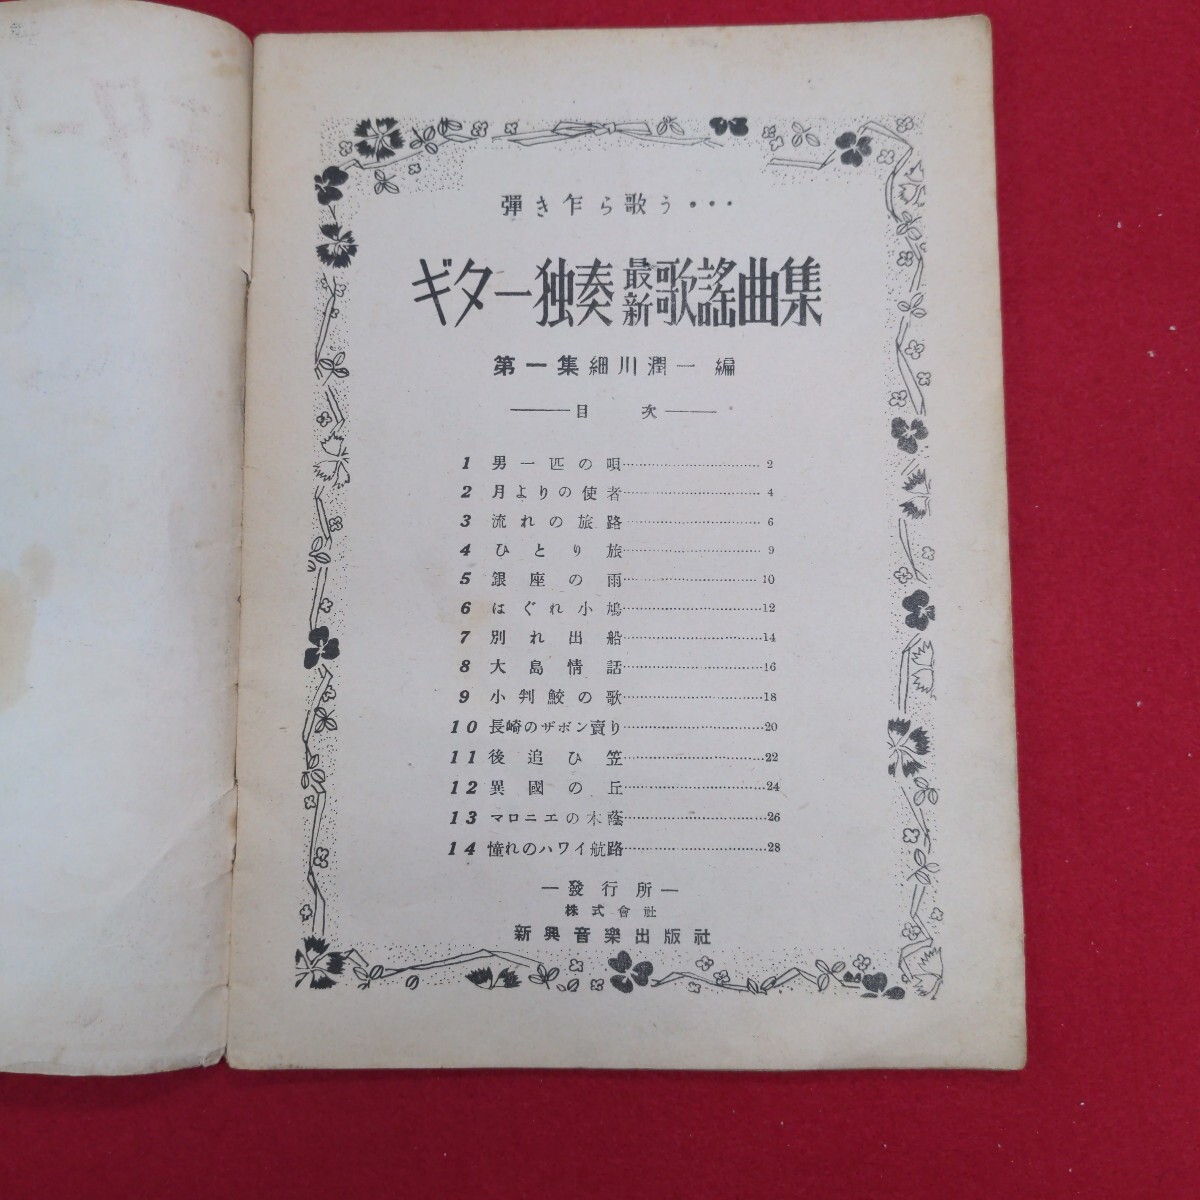 弾き乍ら歌う・・・
ギター独奏最新歌謡曲集
第一集 細川潤一 編
――目 次――
1 男一匹の唄 2
2 月よりの使者 4
3 流れの旅路 6
4 ひとり旅 9
5 銀座の雨 10
6 はぐれ小鳩 12
7 別れ出船 14
8 大島情話 16
9 小判鮫の歌 18
10 長崎のザボン賣り 20
11 後追ひ笠 22
12 異國の丘 24
13 マロニエの木蔭 26
14 憧れのハワイ航路 28
―發行所―
株式會社
新興音樂出版社